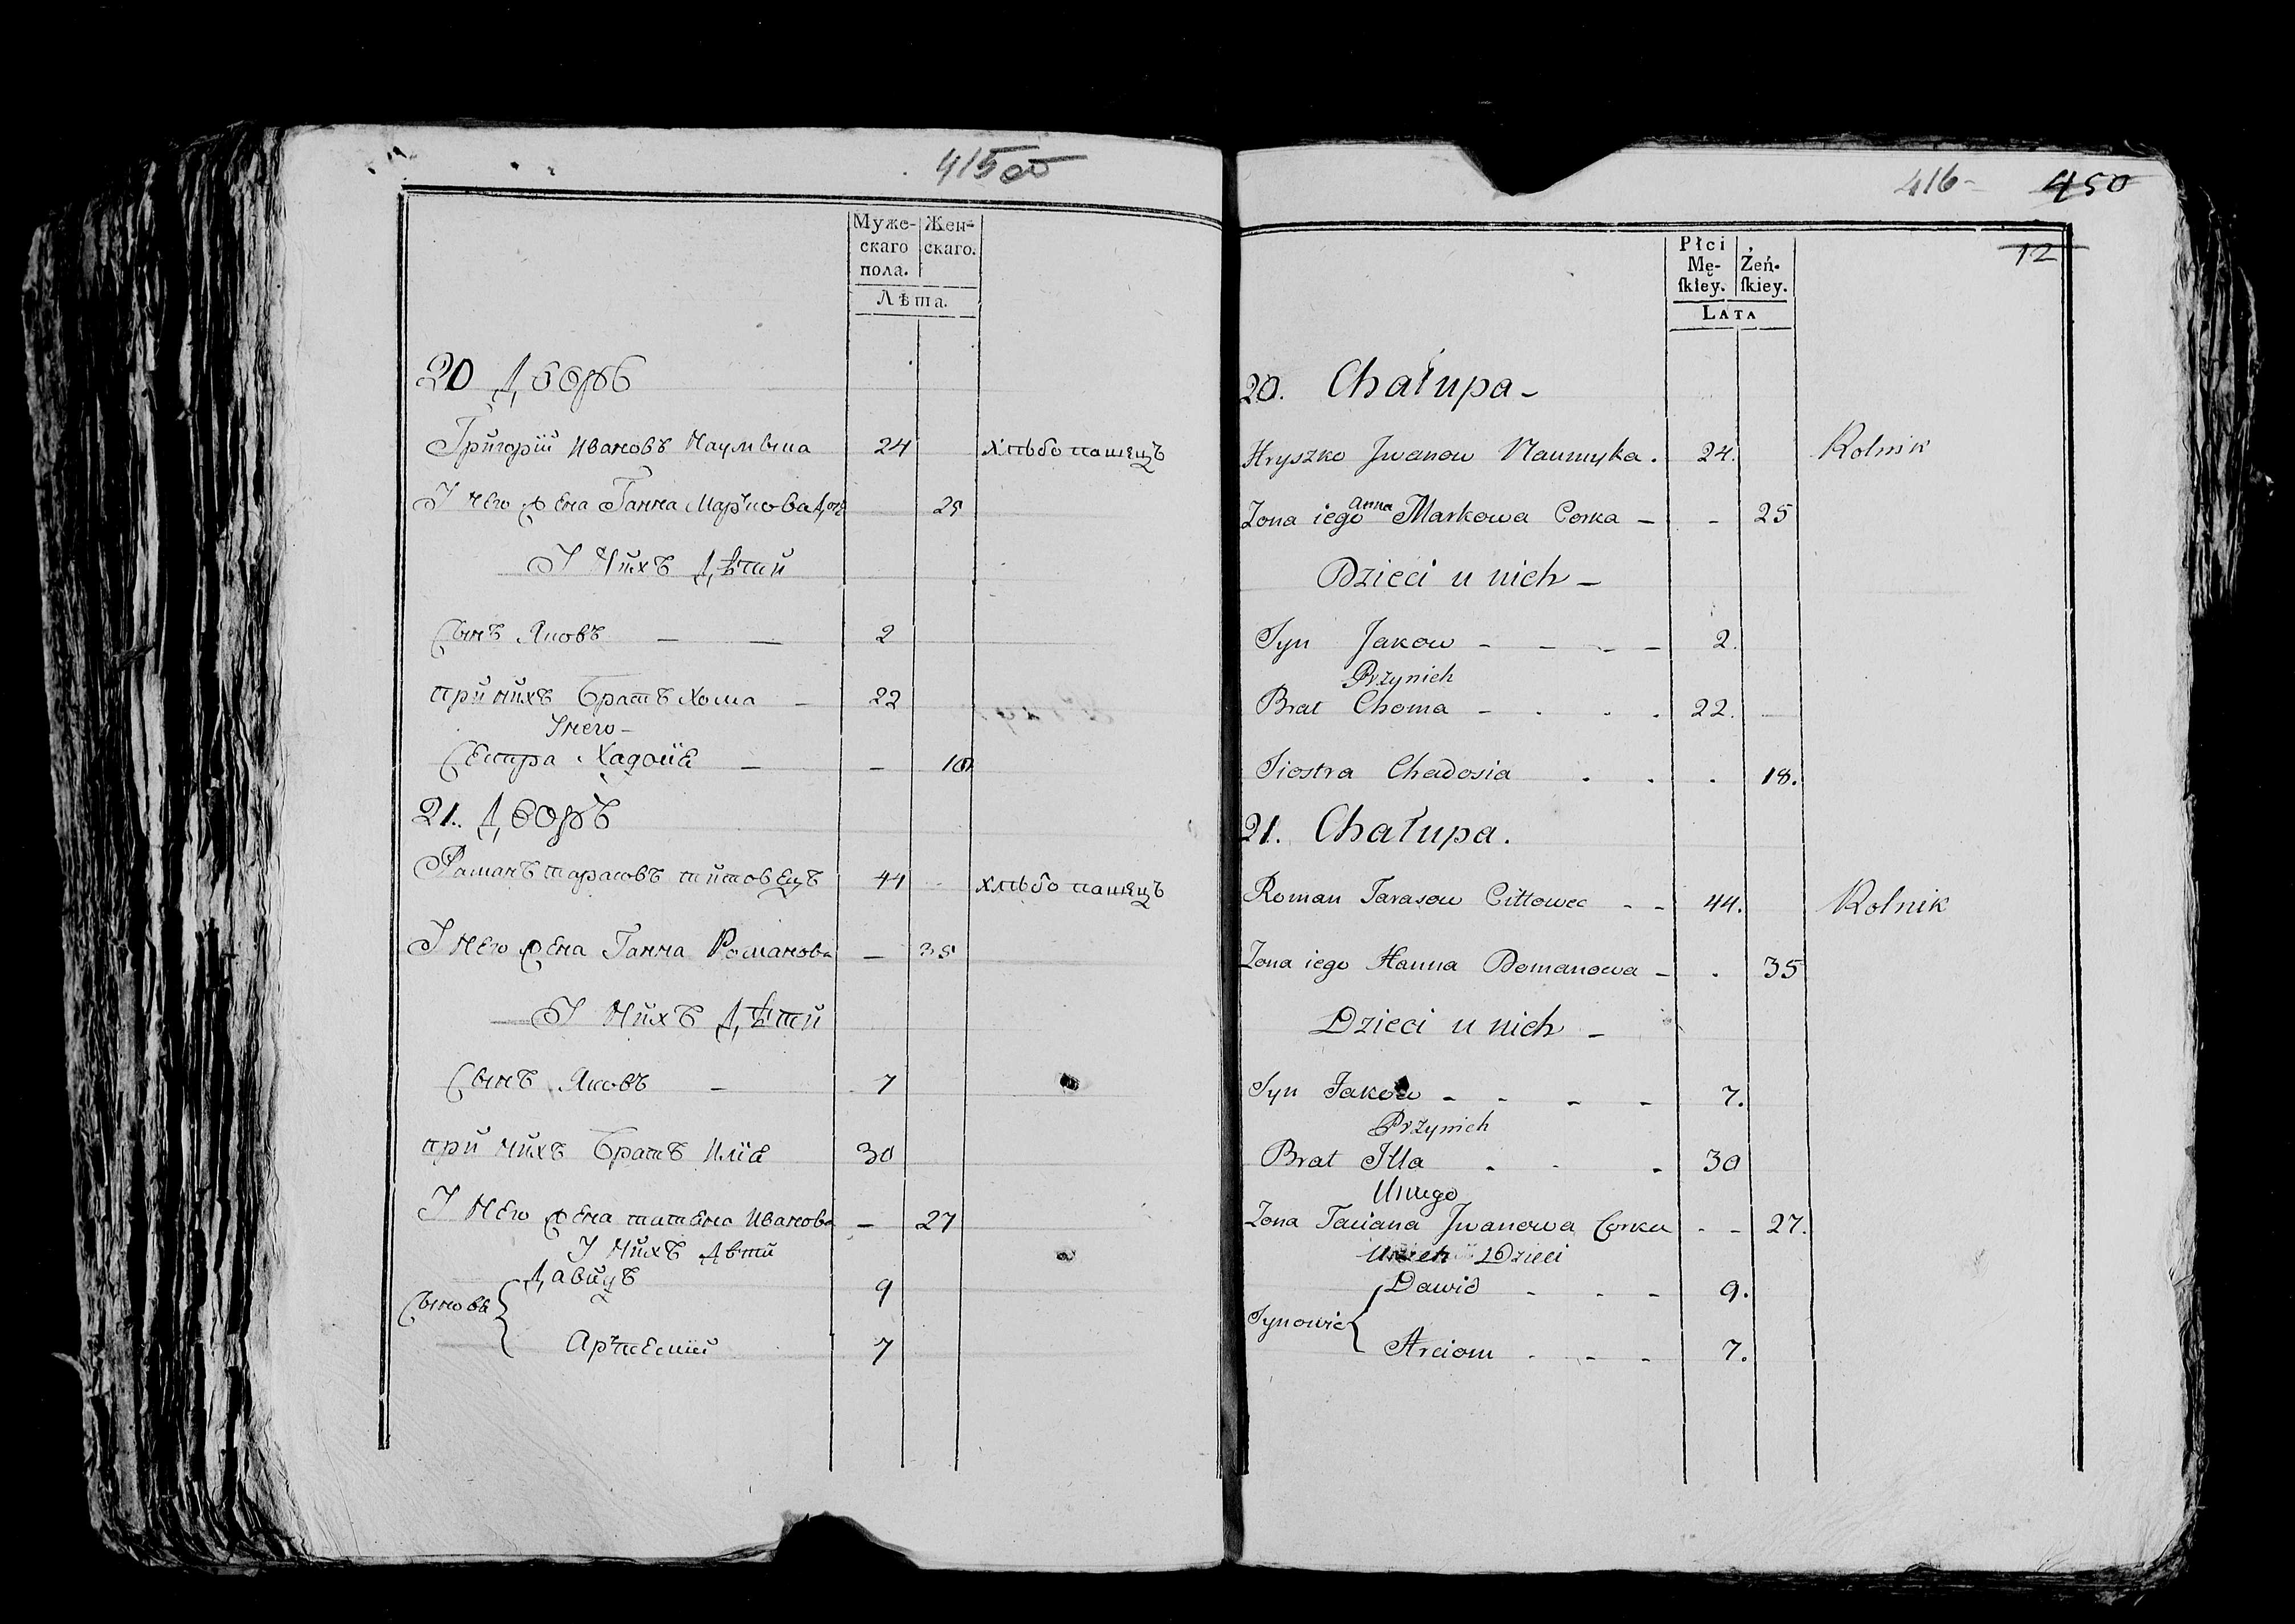 415 об
Муже-
скаго
пола.
Жен-
скаго.
Лѣта.
20 Дворъ
Григорій Ивановъ Наумыка 24 хлѣбопашецъ
У него жена Ганна Маркова дочь 25
У нихъ дѣти
Сынъ Яковъ — — 2
при нихъ братъ Хома — 22
У него —
Сестра — —
21. Дворъ
Раманъ Тарасовъ Титовецъ 44 хлѣбопашецъ
У него жена Ганна Романова — 35
У нихъ дѣти
Сынъ Яковъ — 7
при нихъ братъ Илія 30
У него жена Татьяна Иванова — 27
У нихъ дѣти
Давидъ 9
Сыновья
Артемій 7
416- 450
12
Płci
Mę-
ſkiey.
Żeń-
ſkiey.
Lata
20. Chałupa -
Hryszko Jwanow Naumyka. 24. Rolnik
Zona iego Anna Markowa Corka - - 25
Dzieci u nich -
Syn Jakow - - - - 2.
Przynich
Brat Choma - . . . 22.
Siostra Chadosia . . . 18.
21. Chałupa.
Roman Tarasow Cittowec - - 44. Rolnik
Zona iego Hanna Domanowa - . 35
Dzieci u nich -
Syn Jakow - - - - 7.
Przynich
Brat Illa . . . 30
Uniego
Zona Taciana Jwanowa Corka - - 27.
Unich Dzieci
Dawid - - - 9.
Synowie
Arciom - - - 7.